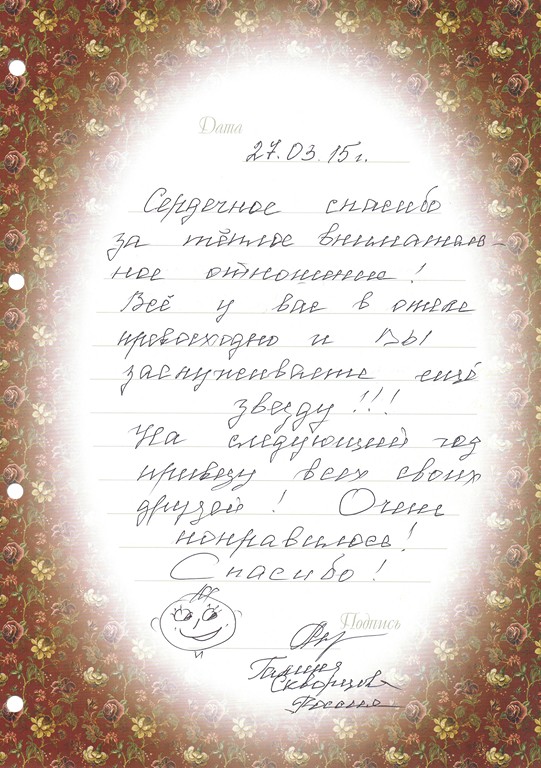 Дата
27.03.15г.
Сердечное спасибо
за тёплое вниматель-
ное отношение!
Всё у вас в отеле
превосходно и ВЫ
заслуживаете ещё
звезду!!!
На следующий год
привезу всех своих
друзей! Очень
понравилось!
Спасибо!
Подпись
Галина
Скворцова
Россия